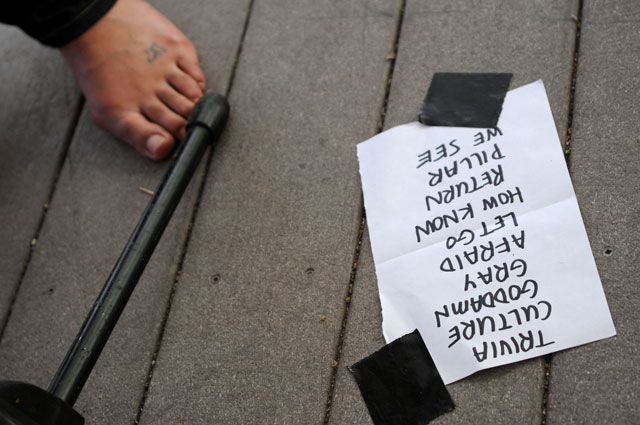 TRIVIA
CULTURE
GODDAMN
GRAY
AFRAID
LET GO
HOW KNOW
RETURN
PILLAR
WE SEE